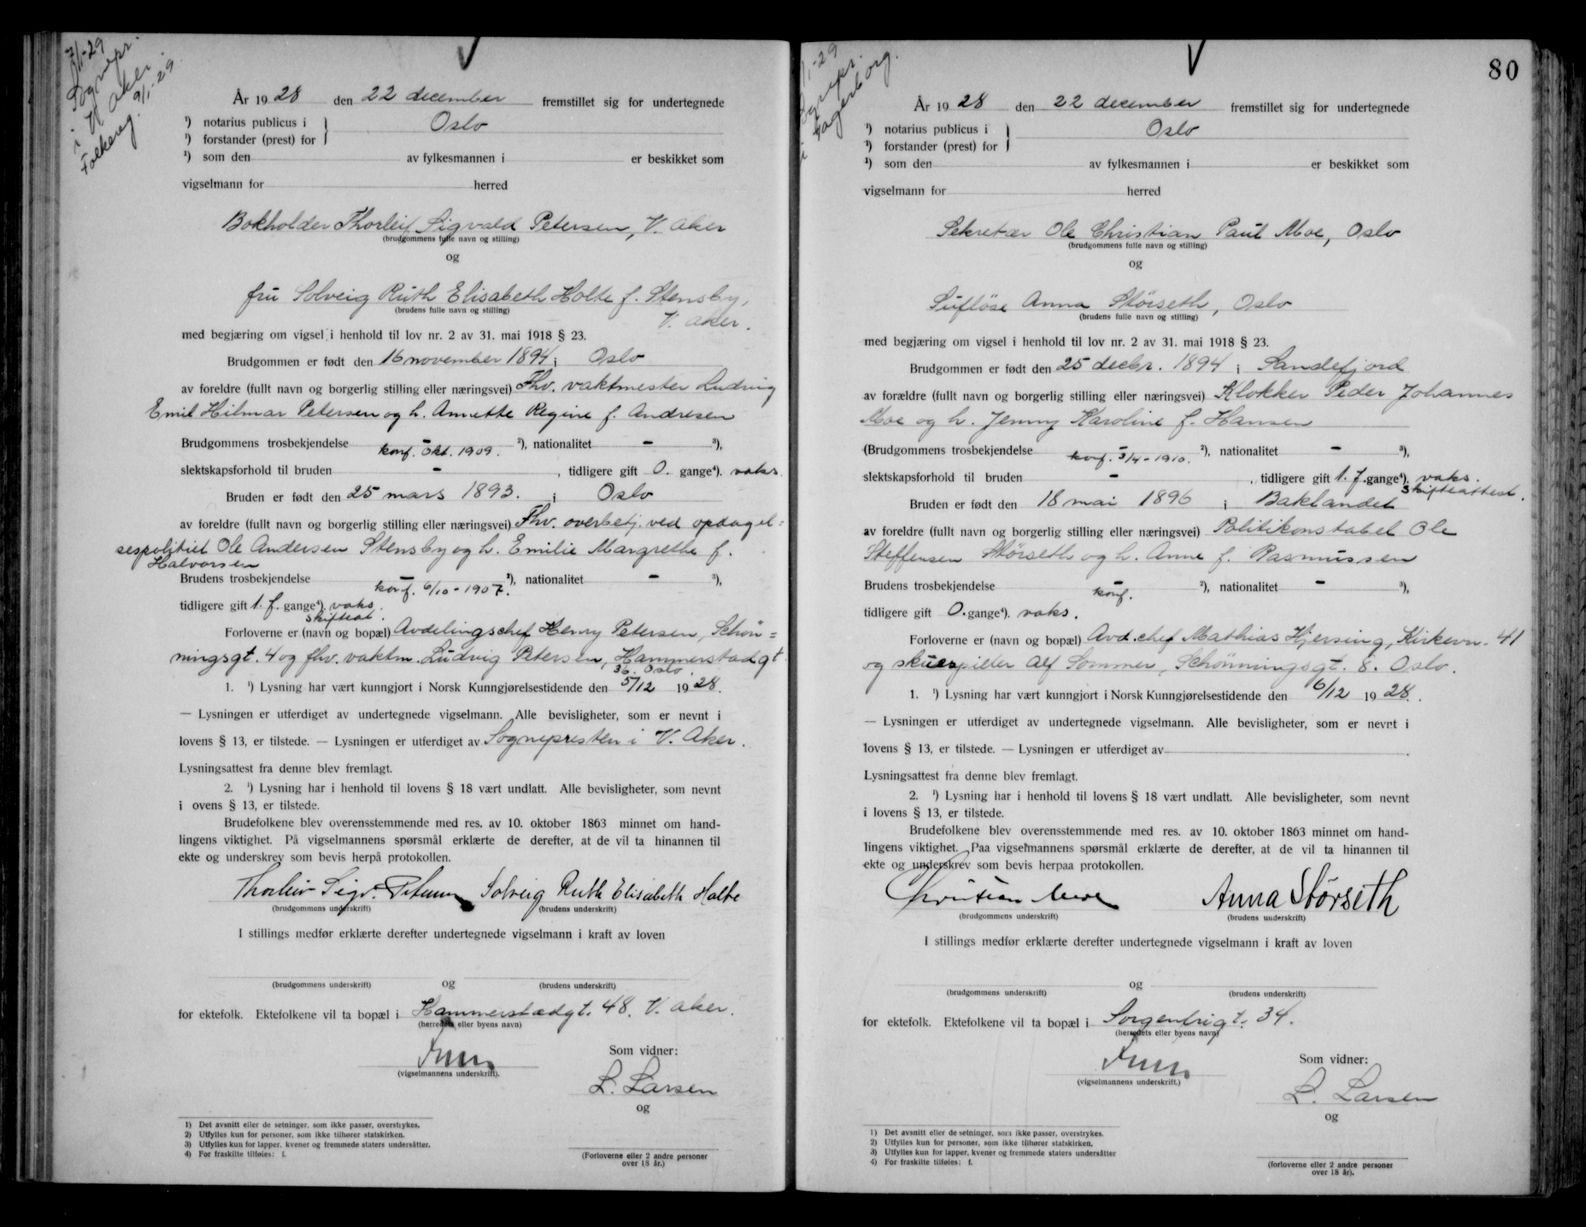 7/1-29
Sognepr.
i V. Aker
Folkereg. 9/1-29.
År 1928 den 22 december fremstillet sig for undertegnede
¹) notarius publicus i } Oslo
¹) forstander (prest) for
¹) som den av fylkesmannen i er beskikket som
vigselmann for herred
Bokholder Thorleif Sigvald Petersen, V. Aker
(brudgommens fulle navn og stilling)
og
fru Solveig Ruth Elisabeth Holte f. Stensby,
(brudens fulle navn og stilling)
V. Aker.
med begjæring om vigsel i henhold til lov nr. 2 av 31. mai 1918 § 23.
Brudgommen er født den 16 november 1894 i Oslo
av foreldre (fullt navn og borgerlig stilling eller næringsvei) Fhv. vaktmester Ludvig
Emil Hilmar Petersen og h. Annette Regine f. Andresen
Brudgommens trosbekjendelse - ²), nationalitet - ³),
konf. okt. 1909.
slektskapsforhold til bruden - , tidligere gift 0. gange⁴). vaks.
Bruden er født den 25 mars 1893. i Oslo
av foreldre (fullt navn og borgerlig stilling eller næringsvei) Fhv. overbetj. ved opdagel=
sespolitiet Ole Andersen Stensby og h. Emilie Margrethe f.
Halvorsen
Brudens trosbekjendelse - ²), nationalitet - ³),
konf. 6/10-1907.
tidligere gift 1. f. gange⁴). vaks.
skifteat.
Forloverne er (navn og bopæl) Avdelingschef Henry Petersen, Schøn=
ningsgt. 4 og fhv. vaktm. Ludvig Petersen, Hammerstadgt.
36. Oslo.
1. ¹) Lysning har vært kunngjort i Norsk Kunngjørelsestidende den 5/12 1928.
— Lysningen er utferdiget av undertegnede vigselmann. Alle bevisligheter, som er nevnt i
lovens § 13, er tilstede. — Lysningen er utferdiget av Sognepresten i V. Aker.
Lysningsattest fra denne blev fremlagt.
2. ¹) Lysning har i henhold til lovens § 18 vært undlatt. Alle bevisligheter, som nevnt
i ovens § 13, er tilstede.
Brudefolkene blev overensstemmende med res. av 10. oktober 1863 minnet om hand-
lingens viktighet. På vigselmannens spørsmål erklærte de derefter, at de vil ta hinannen til
ekte og underskrev som bevis herpå protokollen.
Thorleiv Sigv. Petersen Solveig Ruth Elisabeth Holte
(brudgommens underskrift) (brudens underskrift)
I stillings medfør erklærte derefter undertegnede vigselmann i kraft av loven
og
(brudgommens underskrift) (brudens underskrift)
for ektefolk. Ektefolkene vil ta bopæl i Hammerstadgt. 48. V. Aker.
(herredets eller byens navn)
(vigselmannens underskrift).
Som vidner:
L. Larsen
og
1) Det avsnitt eller de setninger, som ikke passer, overstrykes.
2) Utfylles kun for personer, som ikke tilhører statskirken.
3) Utfylles kun for lapper, kvener og fremmede staters undersåtter.
4) For fraskilte tilføies: f.
(Forloverne eller 2 andre personer
over 18 år.)
80
/1-29
Sognepr.
i Fagerborg.
År 1928 den 22 december fremstillet sig for undertegnede
¹) notarius publicus i } Oslo
¹) forstander (prest) for
¹) som den av fylkesmannen i er beskikket som
vigselmann for herred
Sekretær Ole Christian Paul Moe, Oslo
(brudgommens fulle navn og stilling)
og
Sufløse Anna Størseth, Oslo
(brudens fulle navn og stilling)
med begjæring om vigsel i henhold til lov nr. 2 av 31. mai 1918 § 23.
Brudgommen er født den 25 decbr. 1894 i Sandefjord
av forældre (fullt navn og borgerlig stilling eller næringsvei) Klokker Peder Johannes
Moe og h. Jenny Karoline f. Hansen
(Brudgommens trosbekjendelse - ²), nationalitet - ³),
konf. 3/4-1910.
slektskapsforhold til bruden - , tidligere gift 1. f. gange⁴). vaks.
skifteattest.
Bruden er født den 18 mai 1896 i Baklandet
av foreldre (fullt navn og borgerlig stilling eller næringsvei) Politikonstabel Ole
Steffensen Størseth og h. Anne f. Rasmussen
Brudens trosbekjendelse - ²), nationalitet - ³),
konf.
tidligere gift 0. gange⁴). vaks.
Forloverne er (navn og bopæl) Avd. chef Mathias Hjersing, Kirkevn. 41
og skuespiller Alf Sommer, Schønningsgt. 8. Oslo.
1. ¹) Lysning har vært kunngjort i Norsk Kunngjørelsestidende den 6/12 1928.
— Lysningen er utferdiget av undertegnede vigselmann. Alle bevisligheter, som er nevnt i
lovens § 13, er tilstede. — Lysningen er utferdiget av
Lysningsattest fra denne blev fremlagt.
2. ¹) Lysning har i henhold til lovens § 18 vært undlatt. Alle bevisligheter, som nevnt
i lovens § 13, er tilstede.
Brudefolkene blev overensstemmende med res. av 10. oktober 1863 minnet om hand-
lingens viktighet. Paa vigselmannens spørsmål erklærte de derefter, at de vil ta hinannen til
ekte og underskrev som bevis herpaa protokollen.
Christian Moe Anna Størseth
(brudgommens underskrift) (brudens underskrift)
I stillings medfør erklærte derefter undertegnede vigselmann i kraft av loven
og
(brudgommens underskrift) (brudens underskrift)
for ektefolk. Ektefolkene vil ta bopæl i Sorgenfrigt. 34.
(herredets eller byens navn)
(vigselmannens underskrift.)
Som vidner:
L. Larsen
og
1) Det avsnitt eller de setninger, som ikke passer, overstrykes.
2) Utfylles kun for personer, som ikke tilhører statskirken.
3) Utfylles kun for lapper, kvener og fremmede staters undersåtter
4) For fraskilte tilføies: f.
(forloverne eller 2 andre personer
over 18 år).